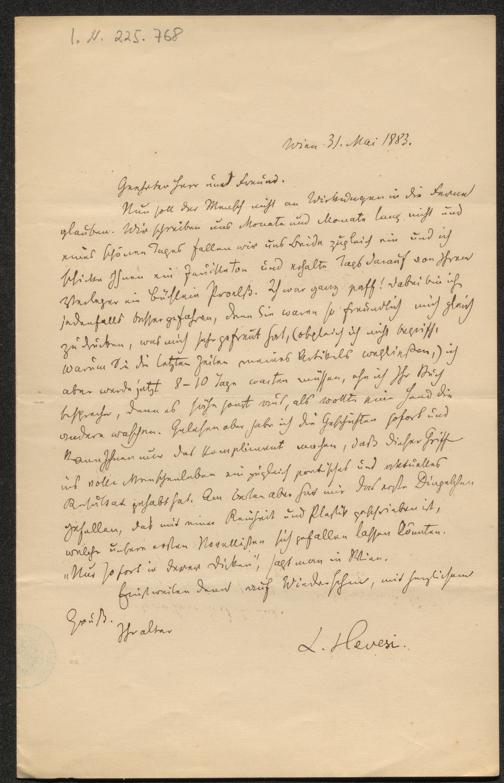 I. N. 225.768
Wien 31. Mai 1883.
Geehrter Herr und Freund.
Nun soll der Mensch nicht an Wirkungen in die Ferne
glauben. Wir schreiben uns Monate und Monate lang nicht und
eines schönen Tages fallen wir uns beide zugleich ein und ich
schicke Ihnen ein Feuilleton und erhalte Tags darauf von Ihrem
Verleger ein Büchlein Proelß. Ich war ganz paff! Dabei bin ich
jedenfalls besser gefahren, denn Sie waren so freundlich mich gleich
zu drucken, was mich sehr gefreut hat, (obgleich ich nicht begriff,
warum Sie die letzten Zeilen meines Artikels wegließen,) ich
aber werde jetzt 8-10 Tage warten müssen, ehe ich Ihr Buch
bespreche, denn es sähe sonst aus, als wollte eine Hand die
andere waschen. Gelesen aber habe ich die Geschichten sofort und
kann Ihnen nur das Kompliment machen, daß dieser Griff
ins volle Menschenleben ein zugleich poetisches und aktuelles
Resultat gehabt hat. Am besten aber hat mir das erste
gefallen, das mit einer Reinheit und Plastik geschrieben ist,
welche unsere ersten Novellisten sich gefallen lassen könnten.
„Nur so fort in derer Dicken", sagt man in Wien.
Einstweilen denn auf Wiedersehen, mit herzlichem
Gruß.
Ihr alter
L. Hevesi.